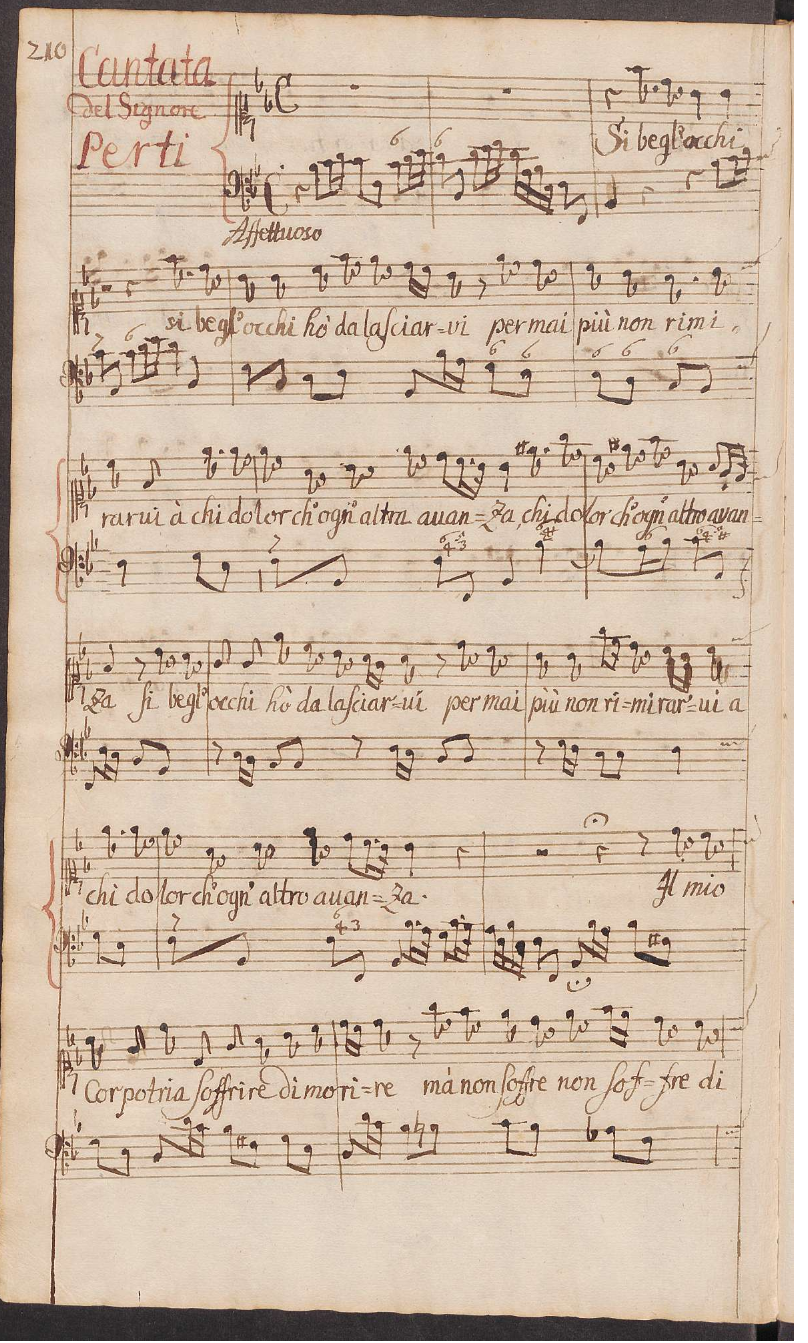 210
Cantata
del Signore
Perti
Si begl'occhi
Affettuoso
si begl'occhi hò da lasciar=vi per mai più non rimi,
rarui à chi dolor ch'ogn'altra auan=za, chi dolor ch'ogn'altro avan=
za si begl'occhi hò da lasciar=ui per mai più non ri=mirar=ui a
chi dolor ch'ogn'altro auan=za. Il mio
Cor potria soffrire di mori=re mà non soffre non sof=fre di